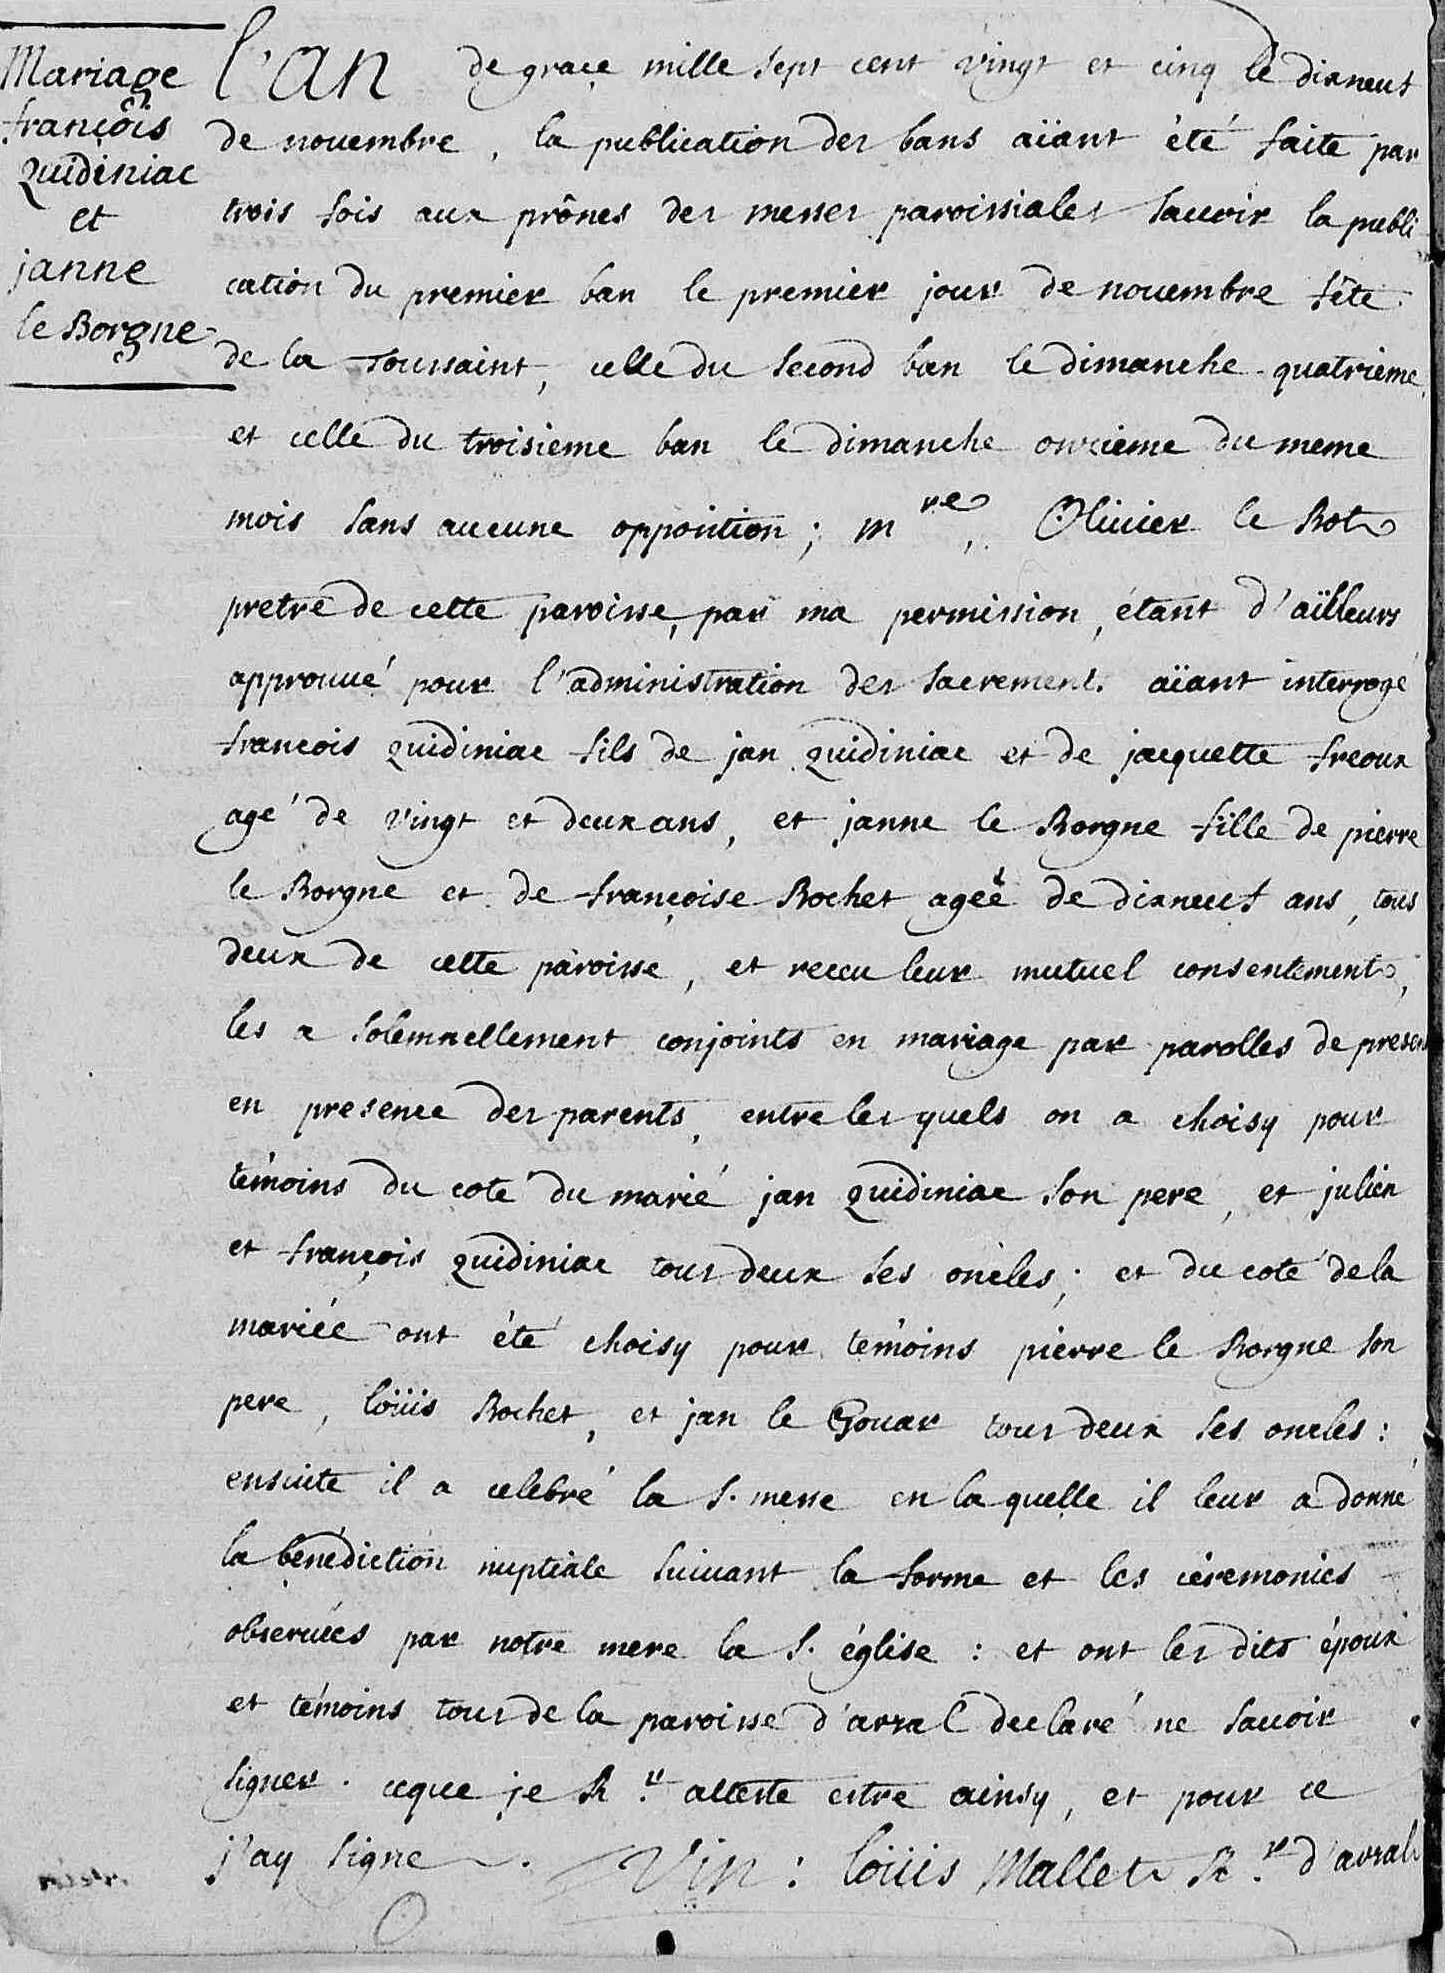 Mariage
françois
quidiniac
et
janne
le Borgne
l'an de grace mille sept cent vingt et cinq le dixneuf
de nouembre, la publication des bans aïant été faite par
trois fois aux prônes des messes paroissiales sauoir la publi
cation du premier ban le premier jour de nouembre fête
de la Toussaint, celle du second ban le dimanche quatrieme
et celle du troisieme ban le dimanche onzieme du meme
mois sans aucune opposition; mre, Oliuier le Rot
pretre de cette paroisse, par ma permission, étant d'aïlleurs
approuué pour l'administration des sacrements aïant interrogé
francois quidiniac fils de jan quidiniac et de jacquette freoux
agé de vingt et deux ans, et janne le Borgne fille de pierre
le Borgne et de françoise Rochet ageé de dixneuf ans, tous
deux de cette paroisse, et receu leur mutuel consentement,
les a solemnellement conjoints en mariage par parolles de present
en presence des parents, entre les quels on a choisy pour
témoins du coté du marié jan quidiniac son pere, et julien
et françois quidiniac tous deux ses oncles; et du coté de la
mariée ont été choisy pour témoins pierre le Borgne son
pere, loüis Rochet, et jan le Gouar tous deux ses oncles:
ensuite il a celebré la S. messe en la quelle il leur a donné
la bénédiction nuptiale suiuant la forme et les céremonies
obseruées par notre mere la S. église : et ont les dits époux
et témoins tous de la paroisse d'arzal declaré ne sauoir
signer. ceque je Rr. atteste estre ainsy, et pour ce
j'ay signe. Vin : loüis Mallet Rr. d'arzal